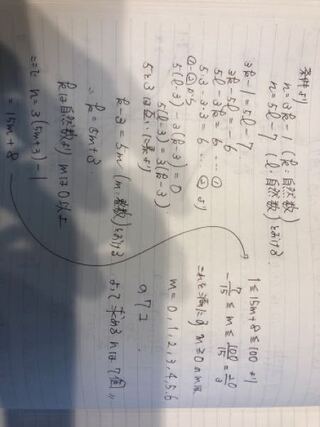 条件より
n=3k-1 (k:自然数)
n=5l-7 (l:自然数)とおける.
3k-1=5l-7
3k-5l=-6
5l-3k=6 …①
5・3-3・3=6 …②より
①-②から
5(l-3)-3(k-3)=0
5(l-3)=3(k-3)
5と3は互いに素より
k-3=5m (m:整数)とおける
∴k=5m+3
kは自然数よりmは0以上
n=3(5m+3)-1
=15m+8
1≦15m+8≦100より
-7/15≦m≦100/15=20/3
これを満たすm≧0のmは
m=0,1,2,3,4,5,6
の7コ
よって求めるnは7個〃